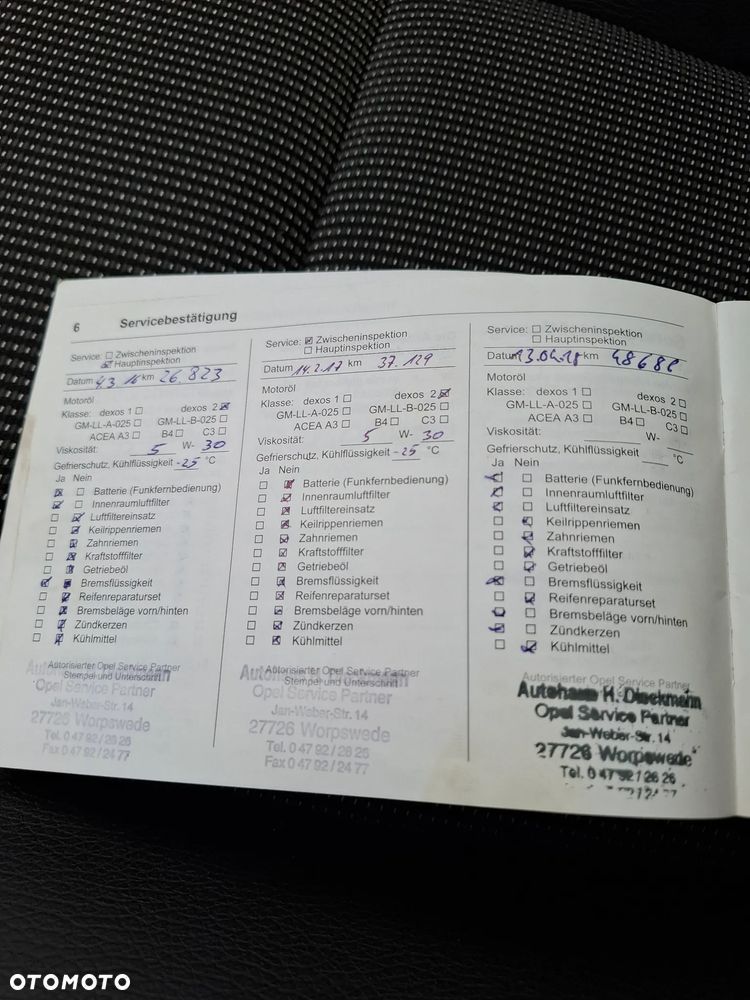 6 Servicebestätigung
Service: Zwischeninspektion
Hauptinspektion
Datum 4.3 16 km 26.823
Motoröl
Klasse: dexos 1 dexos 2
GM-LL-A-025 GM-LL-B-025
ACEA A3 B4 C3
Viskosität: 5 W- 30
Gefrierschutz, Kühlflüssigkeit -25 °C
Ja Nein
Batterie (Funkfernbedienung)
Innenraumluftfilter
Luftfiltereinsatz
Keilrippenriemen
Zahnriemen
Kraftstofffilter
Getriebeöl
Bremsflüssigkeit
Reifenreparaturset
Bremsbeläge vorn/hinten
Zündkerzen
Kühlmittel
Autorisierter Opel Service Partner
Stempel und Unterschrift
Opel Service Partner
Jan-Weber-Str. 14
27726 Worpswede
Tel. 0 47 92 / 26 26
Fax 0 47 92 / 24 77
Service: Zwischeninspektion
Hauptinspektion
Datum 14.2.17 km 37.129
Motoröl
Klasse: dexos 1 dexos 2
GM-LL-A-025 GM-LL-B-025
ACEA A3 B4 C3
Viskosität: 5 W- 30
Gefrierschutz, Kühlflüssigkeit -25 °C
Ja Nein
Batterie (Funkfernbedienung)
Innenraumluftfilter
Luftfiltereinsatz
Keilrippenriemen
Zahnriemen
Kraftstofffilter
Getriebeöl
Bremsflüssigkeit
Reifenreparaturset
Bremsbeläge vorn/hinten
Zündkerzen
Kühlmittel
Autorisierter Opel Service Partner
Stempel und Unterschrift
Opel Service Partner
Jan-Weber-Str. 14
27726 Worpswede
Tel. 0 47 92 / 26 26
Fax 0 47 92 / 24 77
Service: Zwischeninspektion
Hauptinspektion
Datum 13.04.18 km
Motoröl
Klasse: dexos 1 dexos 2
GM-LL-A-025 GM-LL-B-025
ACEA A3 B4 C3
Viskosität: W-
Gefrierschutz, Kühlflüssigkeit °C
Ja Nein
Batterie (Funkfernbedienung)
Innenraumluftfilter
Luftfiltereinsatz
Keilrippenriemen
Zahnriemen
Kraftstofffilter
Getriebeöl
Bremsflüssigkeit
Reifenreparaturset
Bremsbeläge vorn/hinten
Zündkerzen
Kühlmittel
Autorisierter Opel Service Partner
Autohaus H. Dieckmann
Opel Service Partner
Jan-Weber-Str. 14
27726 Worpswede
Tel. 0 47 92 / 26 26
OTOMOTO